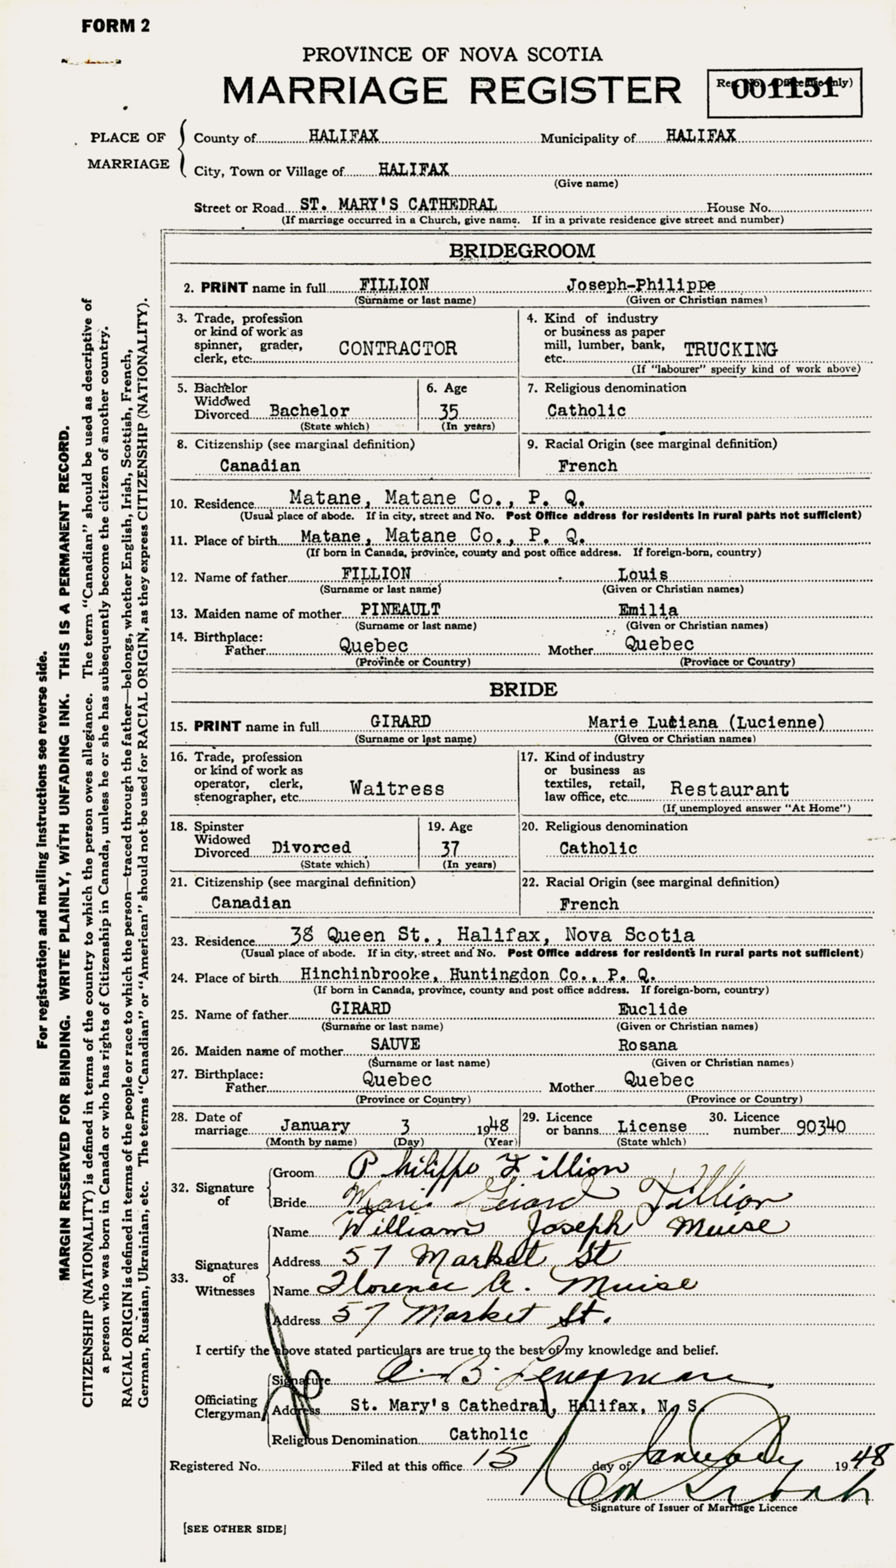 FORM 2
PROVINCE OF NOVA SCOTIA
MARRIAGE REGISTER
001151
PLACE OF MARRIAGE
County of HALIFAX Municipality of HALIFAX
City, Town or Village of HALIFAX
(Give name)
Street or Road ST. MARY'S CATHEDRAL House No.
(If marriage occurred in a Church, give name. If in a private residence give street and number)
BRIDEGROOM
2. PRINT name in full FILLION Joseph-Philippe
(Surname or last name) (Given or Christian names)
3. Trade, profession or kind of work as spinner, grader, clerk, etc. CONTRACTOR
4. Kind of industry or business as paper mill, lumber, bank, etc. TRUCKING
(If "labourer" specify kind of work above)
5. Bachelor Widowed Divorced Bachelor
(State which)
6. Age 35
(In years)
7. Religious denomination
Catholic
8. Citizenship (see marginal definition)
Canadian
9. Racial Origin (see marginal definition)
French
10. Residence Matane, Matane Co., P. Q.
(Usual place of abode. If in city, street and No. Post Office address for residents in rural parts not sufficient)
11. Place of birth Matane, Matane Co., P. Q.
(If born in Canada, province, county and post office address. If foreign-born, country)
12. Name of father FILLION Louis
(Surname or last name) (Given or Christian names)
13. Maiden name of mother PINEAULT Emilia
(Surname or last name) (Given or Christian names)
14. Birthplace:
Father Quebec Mother Quebec
(Province or Country) (Province or Country)
BRIDE
15. PRINT name in full GIRARD Marie Lutiana (Lucienne)
(Surname or last name) (Given or Christian names)
16. Trade, profession or kind of work as operator, clerk, stenographer, etc. Waitress
17. Kind of industry or business as textiles, retail, law office, etc. Restaurant
(If unemployed answer "At Home")
18. Spinster Widowed Divorced Divorced
(State which)
19. Age 37
(In years)
20. Religious denomination
Catholic
21. Citizenship (see marginal definition)
Canadian
22. Racial Origin (see marginal definition)
French
23. Residence 38 Queen St., Halifax, Nova Scotia
(Usual place of abode. If in city, street and No. Post Office address for residents in rural parts not sufficient)
24. Place of birth Hinchinbrooke, Huntingdon Co., P. Q.
(If born in Canada, province, county and post office address. If foreign-born, country)
25. Name of father GIRARD Euclide
(Surname or last name) (Given or Christian names)
26. Maiden name of mother SAUVE Rosana
(Surname or last name) (Given or Christian names)
27. Birthplace:
Father Quebec Mother Quebec
(Province or Country) (Province or Country)
28. Date of marriage January 3 1948
(Month by name) (Day) (Year)
29. Licence or banns License
(State which)
30. Licence number 90340
32. Signature of
Groom Philippe Fillion
Bride Marie Girard Fillion
33. Signatures of Witnesses
Name William Joseph Muise
Address 57 Market St
Name Florence A. Muise
Address 57 Market St.
I certify the above stated particulars are true to the best of my knowledge and belief.
Officiating Clergyman
Signature A. B.
Address St. Mary's Cathedral, Halifax, N. S.
Religious Denomination Catholic
Registered No. Filed at this office 15 day of January 1948
Signature of Issuer of Marriage Licence
[SEE OTHER SIDE]
For registration and mailing instructions see reverse side.
MARGIN RESERVED FOR BINDING. WRITE PLAINLY, WITH UNFADING INK. THIS IS A PERMANENT RECORD.
CITIZENSHIP (NATIONALITY) is defined in terms of the country to which the person owes allegiance. The term "Canadian" should be used as descriptive of
a person who was born in Canada or who has rights of Citizenship in Canada, unless he or she has subsequently become the citizen of another country.
RACIAL ORIGIN is defined in terms of the people or race to which the person—traced through the father—belongs, whether English, Irish, Scottish, French,
German, Russian, Ukrainian, etc. The terms "Canadian" or "American" should not be used for RACIAL ORIGIN, as they express CITIZENSHIP (NATIONALITY).